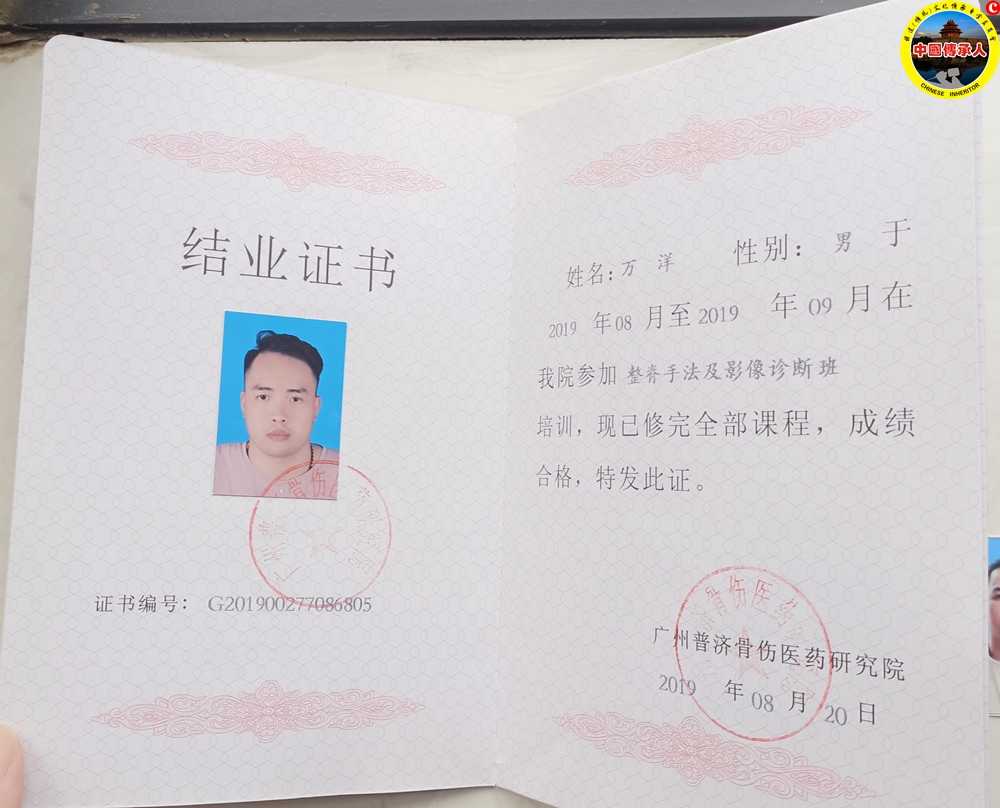 结业证书
证书编号： G201900277086805
姓名：万 洋 性别： 男 于
2019 年08 月至2019 年 09 月在
我院参加 整脊手法及影像诊断班
培训，现已修完全部课程，成绩
合格，特发此证。
广州普济骨伤医药研究院
2019 年 08 月 20 日
中國傳承人
CHINESE INHERITOR